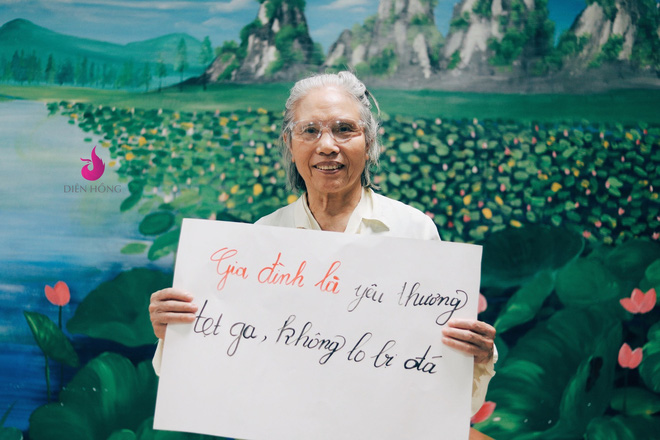 DIÊN HỒNG
Gia đình là yêu thương
tẹt ga, không lo bị đá